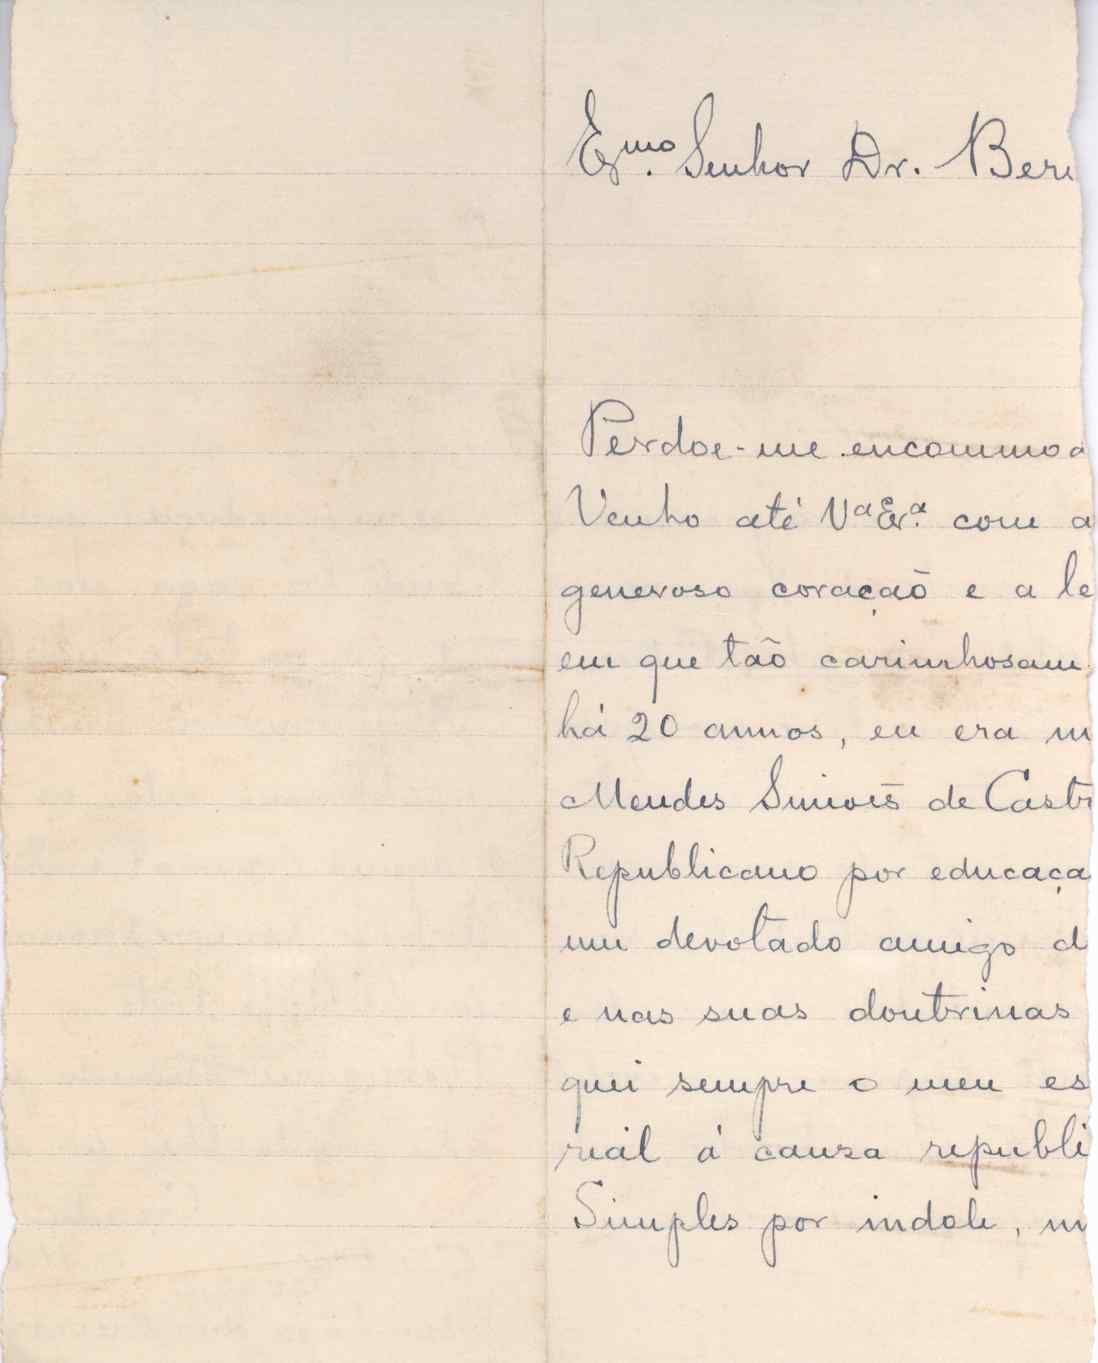 Exmo. Senhor Dr. Ber
Perdoe-me encommod
Venho até Vª Exª. com a
generoso coração e a le
em que tão carinhosam
há 20 annos, eu era m
Mendes Simões de Castr
Republicano por educaça
um devotado amigo d
e nas suas doutrinas
quei sempre o meu es
rial á causa republi
Simples por indole, m